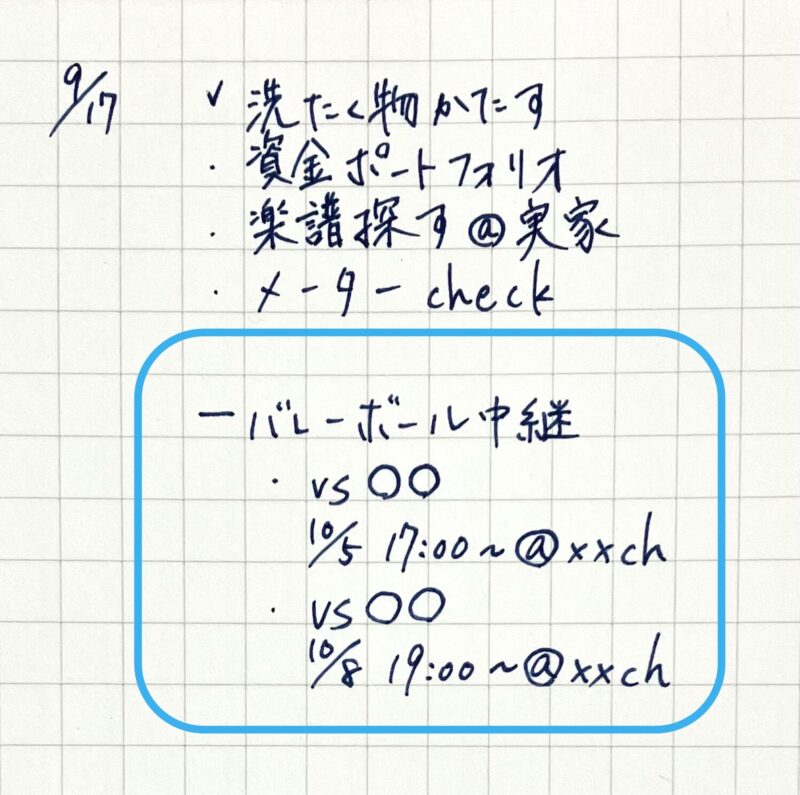 9/17
✓ 洗たく物かたす
・資金ポートフォリオ
・楽譜探す@実家
・メーター check
ーバレーボール中継
・vs〇〇
10/5 17:00~@xxch
・vs〇〇
10/8 19:00~@xxch